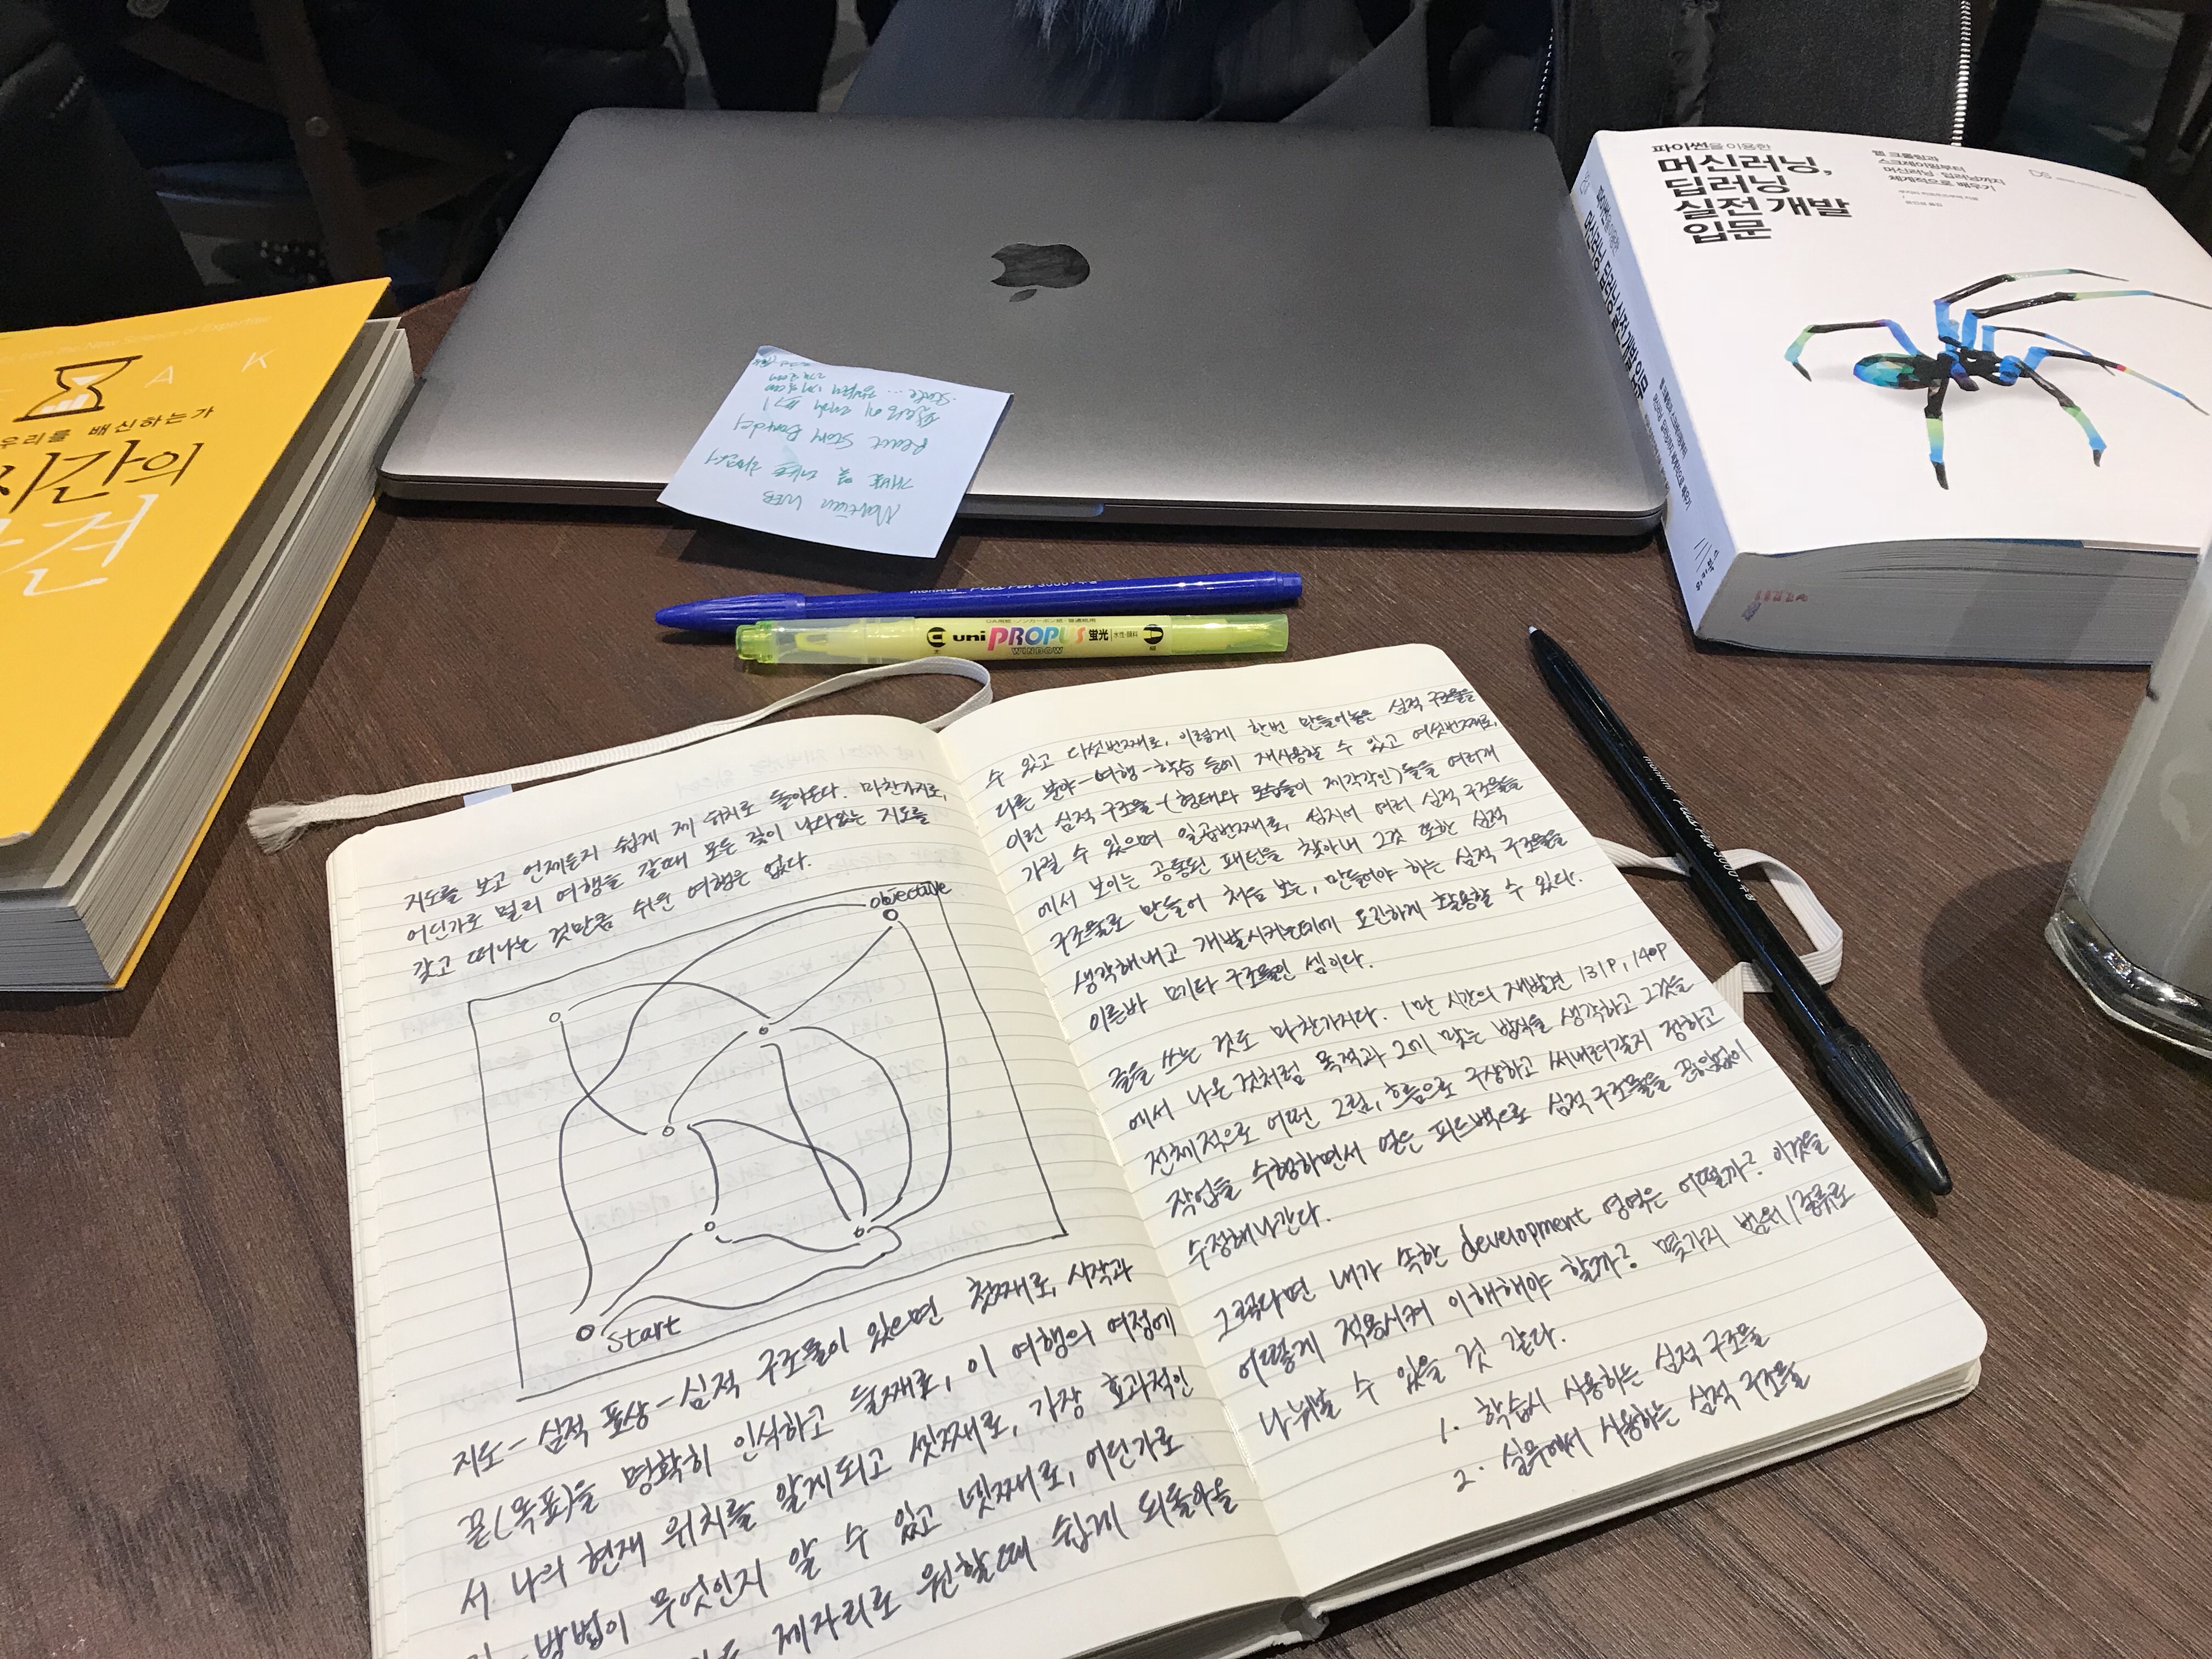 P E A K
우리를 배신하는가
시간의
발견
파이썬을 이용한
머신러닝,
딥러닝
실전 개발
입문
웹 크롤링과
스크레이핑부터
머신러닝·딥러닝까지
체계적으로 배우기
DS
파이썬을 이용한 머신러닝, 딥러닝 실전 개발 입문
위키북스
Martian WEB
React Story Board
monami Plus Pen 3000
uni PROPUS 蛍光
WINDOW
monami Plus Pen 3000
지도를 보고 언제든지 쉽게 제 위치로 돌아온다. 마찬가지로,
어딘가로 멀리 여행을 갈때 모든 것이 나와있는 지도를
갖고 떠나는 것만큼 쉬운 여행은 없다.
objective
start
지도-심적 표상-심적 구조물이 있으면 첫째로, 시작과
끝(목표)을 명확히 인식하고 둘째로, 이 여행의 여정에
서 나의 현재 위치를 알게되고 셋째로, 가장 효과적인
방법이 무엇인지 알 수 있고 넷째로, 어딘가로
제자리로 원할때 쉽게 되돌아올
수 있고 다섯번째로, 이렇게 한번 만들어놓은 심적 구조물을
다른 분야-여행-학습 등에 재사용할 수 있고 여섯번째로,
이런 심적 구조물-(형태와 모습들이 제각각인)들을 여러개
가질 수 있으며 일곱번째로, 심지어 여러 심적 구조물들
에서 보이는 공통된 패턴을 찾아내 그것 또한 심적
구조물로 만들어 처음 보는, 만들어야 하는 심적 구조물을
생각해내고 개발시키는데에 요긴하게 활용할 수 있다.
이른바 메타 구조물인 셈이다.
글을 쓰는 것도 마찬가지다. 1만 시간의 재발견 131P, 140P
에서 나온 것처럼 목적과 그에 맞는 방식을 생각하고 그것을
전체적으로 어떤 그림, 흐름으로 구상하고 써내려갈지 정하고
작업을 수행하면서 얻은 피드백으로 심적 구조물을 끊임없이
수정해나간다.
그렇다면 내가 속한 development 영역은 어떨까? 이것을
어떻게 적용시켜 이해해야 할까? 몇가지 범위/종류로
나눠볼 수 있을 것 같다.
1. 학습시 사용하는 심적 구조물
2. 실무에서 사용하는 심적 구조물